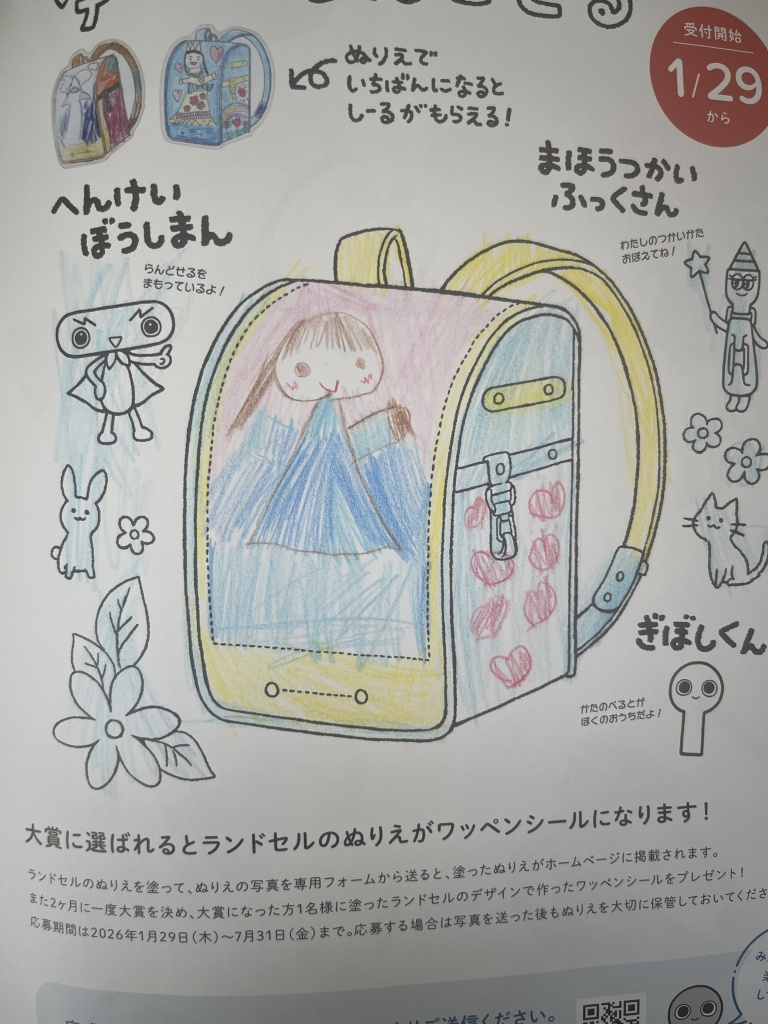 受付開始
1/29
から
ぬりえで
いちばんになると
しーるがもらえる!
へんけい
ぼうしまん
らんどせるを
まもっているよ!
まほうつかい
ふっくさん
わたしのつかいかた
おぼえてね!
ぎぼしくん
かたのべるとが
ぼくのおうちだよ!
大賞に選ばれるとランドセルのぬりえがワッペンシールになります!
ランドセルのぬりえを塗って、ぬりえの写真を専用フォームから送ると、塗ったぬりえがホームページに掲載されます。
また2ヶ月に一度大賞を決め、大賞になった方1名様に塗ったランドセルのデザインで作ったワッペンシールをプレゼント!
応募期間は2026年1月29日(木)~7月31日(金)まで。応募する場合は写真を送った後もぬりえを大切に保管しておいてくださ
ください。